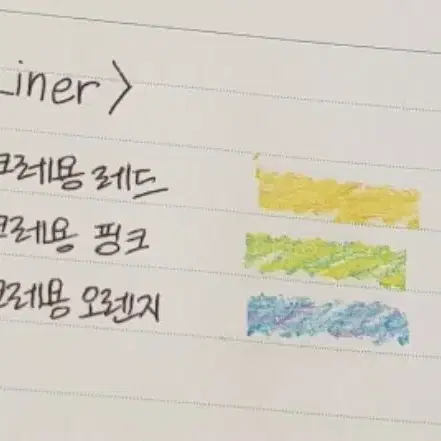 Liner>
크레용 레드
크레용 핑크
크레용 오렌지